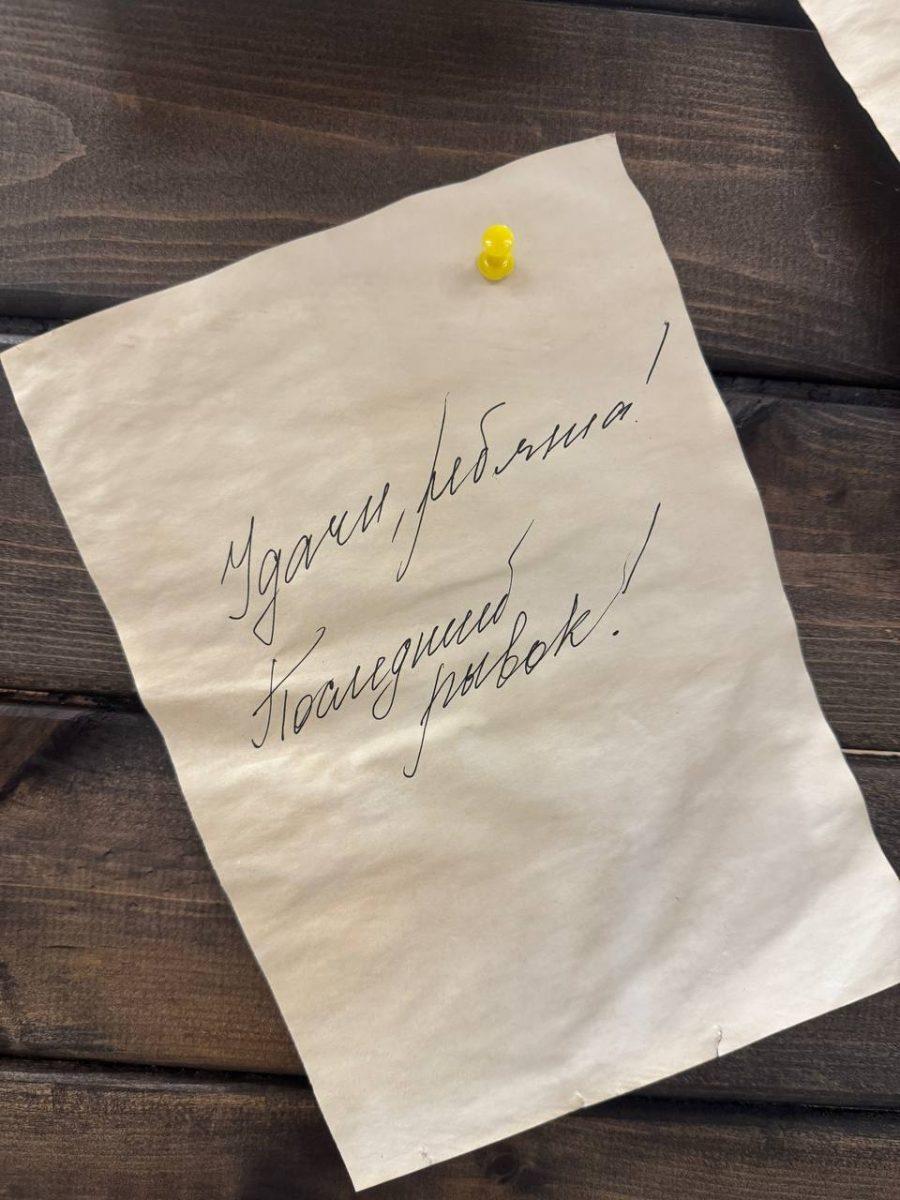 Удачи, ребятня!
Последний
рывок!